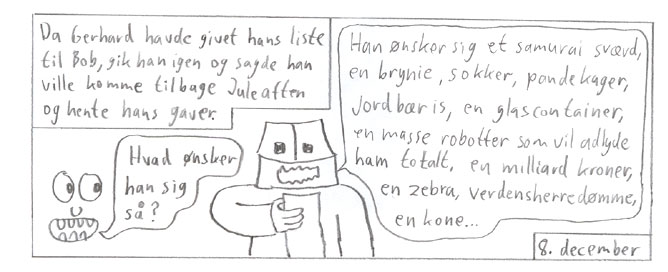 Da Gerhard havde givet hans liste
til Bob, gik han igen og sagde han
ville komme tilbage Juleaften
og hente hans gaver.
Hvad ønsker
han sig
så?
Han ønsker sig et samurai sværd,
en brynie, sokker, pandekager,
Jordbær is, en glascontainer,
en masse robotter som vil adlyde
ham totalt, en milliard kroner,
en zebra, verdensherredømme,
en kone...
8. december